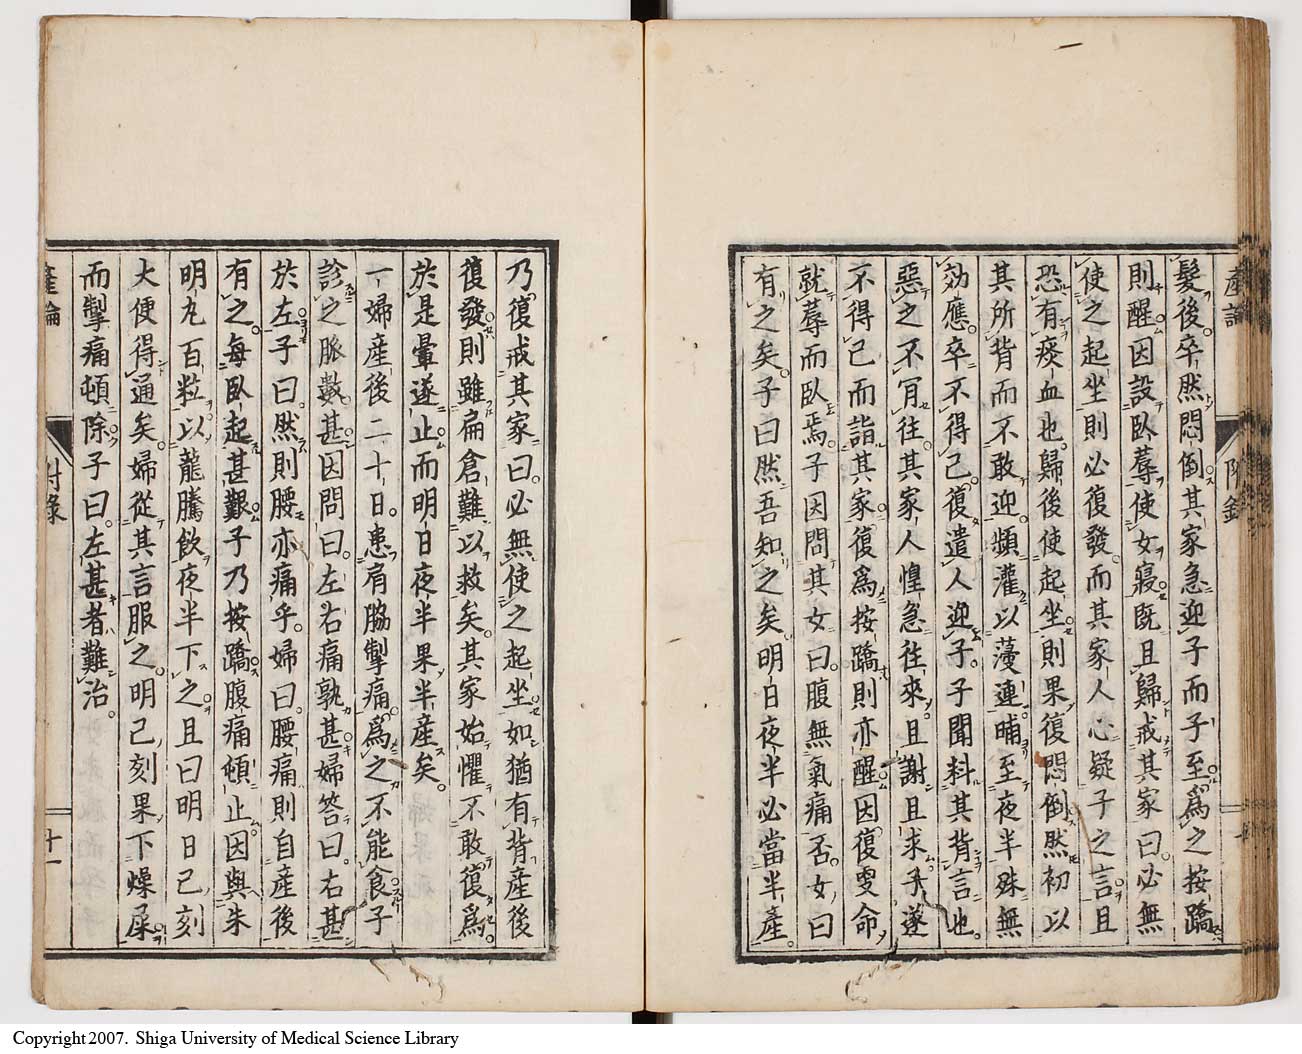 髮後卒然悶倒其家急迎子而子至爲之按蹻
則醒因設臥蓐使女寢既且歸戒其家曰必無
使之起坐則必復發而其家人心疑子之言且
恐有瘀血也歸後使起坐則果復悶倒然初以
其所背而不敢迎頻灌以蕩連晡至夜半殊無
効應卒不得已復遣人迎子子聞料其背言也
惡之不肎往其家人惶急往來且謝且求子遂
不得已而詣其家復爲按蹻則亦醒因復叮命
就蓐而臥焉子因問其女曰腹無氣痛否女曰
有之矣子曰然吾知之矣明日夜半必當半產
產論
附錄
乃復戒其家曰必無使之起坐如猶有背產後
復發則雖扁倉難以救矣其家始懼不敢復爲
於是暈遂止而明日夜半果半產矣
一婦產後二十日患肩脇掣痛爲之不能食子
診之脈數甚因問曰左右痛孰甚婦答曰右甚
於左子曰然則腰亦痛乎婦曰腰痛則自產後
有之每臥起甚艱子乃按蹻腹痛頓止因與朱
明丸百粒以龍騰飲夜半下之且曰明日巳刻
大便得通矣婦從其言服之明巳刻果下燥屎
而掣痛頓除子曰左甚者難治
產論
附錄
十一
Copyright 2007. Shiga University of Medical Science Library